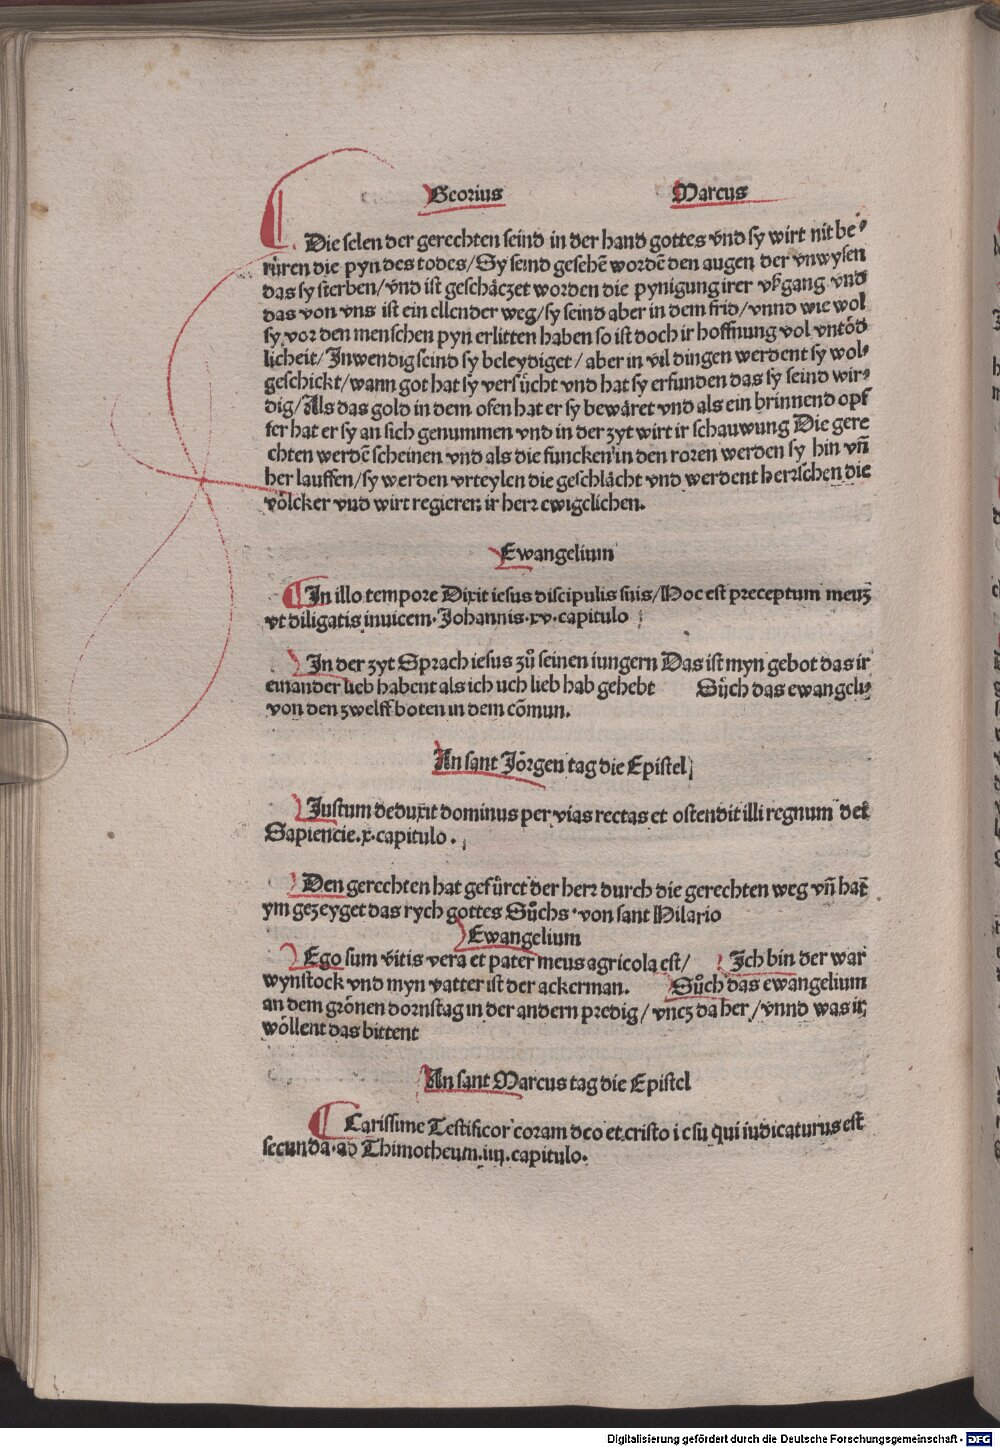 Georius Marcus
Die selen der gerechten seind in der hand gottes vnd sy wirt nit be⸗
rüren die pyn des todes/Sy seind gesehē wordē den augen der vnwysen
das sy sterben/vnd ist geschåczet worden die pynigung irer vßgang vnd
das von vns ist ein ellender weg/sy seind aber in dem frid/vnnd wie wol
sy vor den menschen pyn erlitten haben so ist doch ir hoffnung vol vntöd
licheit/Inwendig seind sy beleydiget/aber in vil dingen werdent sy wol⸗
geschickt/wann got hat sy versůcht vnd hat sy erfunden das sy seind wir⸗
dig/Als das gold in dem ofen hat er sy bewåret vnd als ein brinnend opf
fer hat er sy an sich genummen vnd in der zyt wirt ir schauwung Die gere
chten werdē scheinen vnd als die funcken in den roren werden sy hin vñ
her lauffen/sy werden vrteylen die geschlåcht vnd werdent herrschen die
völcker vnd wirt regieren ir herr ewigclichen.
Ewangelium
In illo tempore Dixit iesus discipulis suis/Hoc est preceptum meuʒ
vt diligatis inuicem. Johannis.xv.capitulo
In der zyt Sprach iesus zů seinen iungern Das ist myn gebot das ir
einander lieb habent als ich uch lieb hab gehebt Sůch das ewangeli⸗
von den zwelff boten in dem cōmun.
An sant Jörgen tag die Epistel
Justum deduxit dominus per vias rectas et ostendit illi regnum dei
Sapiencie.x.capitulo.
Den gerechten hat gefüret der herr durch die gerechten weg vñ hat
ym gezeyget das rych gottes Sůchs von sant Hilario
Ewangelium
Ego sum vitis vera et pater meus agricola est/ Ich bin der war
wynstock vnd myn vatter ist der ackerman. Sůch das ewangelium
an dem grönen dornstag in der andern predig/vncz da her/vnnd was ir
wöllent das bittent
An sant Marcus tag die Epistel
Carissime Testificor coram deo et cristo iesu qui iudicaturus est
secunda.ad Thimotheum.iiij.capitulo.
Digitalisierung gefördert durch die Deutsche Forschungsgemeinschaft - DFG